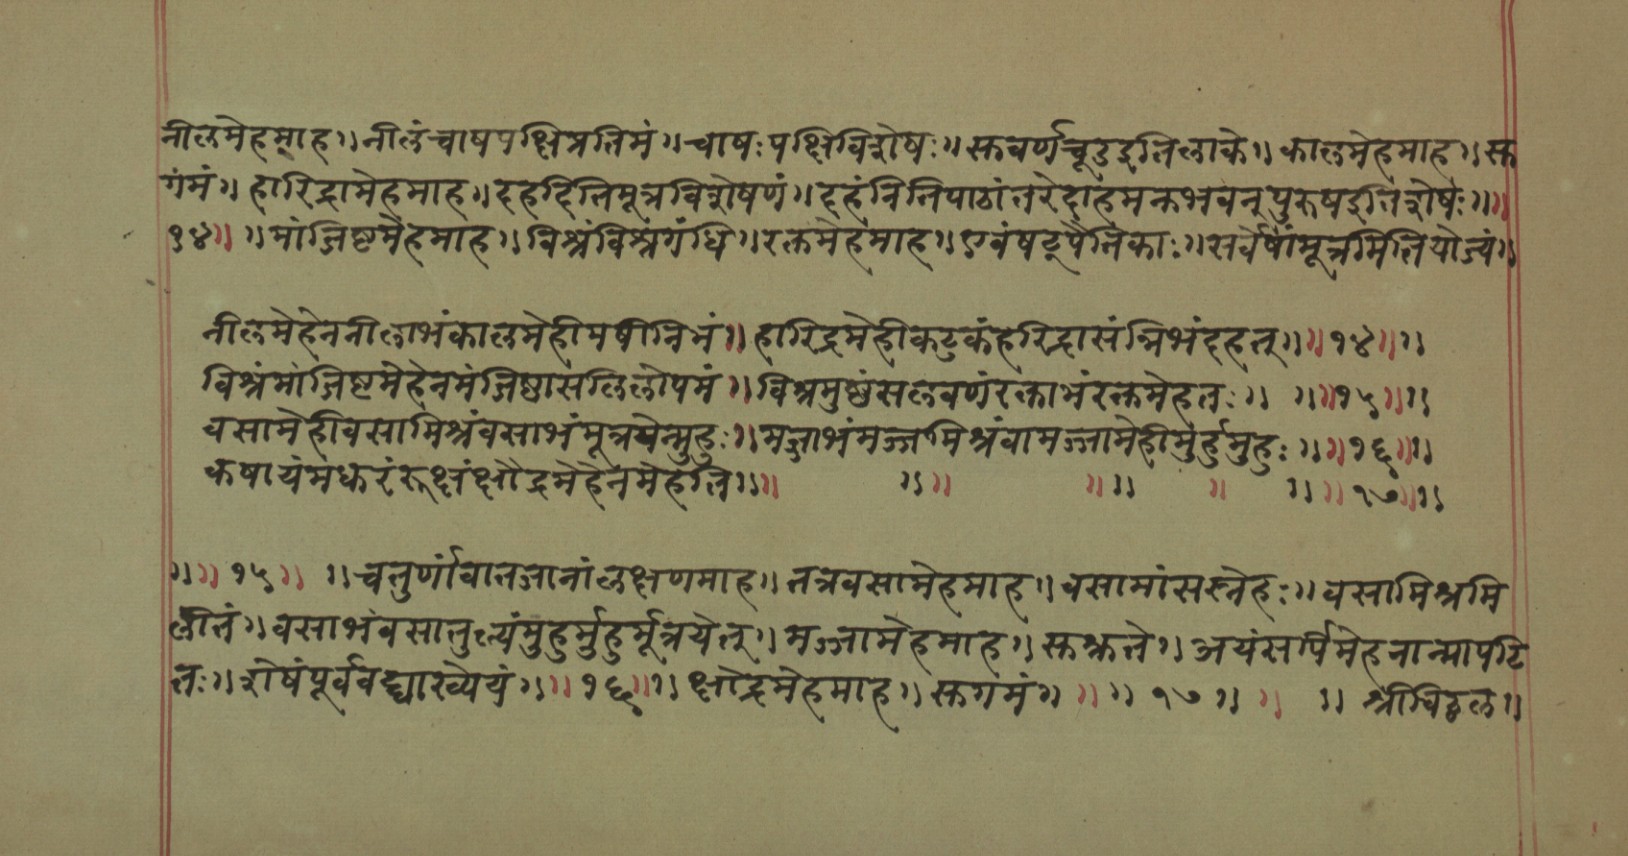 नीलमेहमाह॥नीलंचाषपक्षिप्रतिमं॥चाषःपक्षिविशेषः॥सुवर्णचूडइतिलोके॥कालमेहमाह॥सु
गंमं॥हारिद्रामेहमाह॥दहदितिमूत्रविशेषणं॥दहंनितिपाठांतरेदाहमनुभवन्पुरुषइतिशेषः॥॥
१४॥ ॥मांजिष्टमेहमाह॥विश्रंविश्रंगंधि॥रक्तमेहमाह॥एवंषट्पैत्तिकाः॥सर्वेषांमूत्रमितियोज्यं॥
नीलमेहेननीलाभंकालमेहीमषीनिभं॥हारिद्रमेहीकटुकंहरिद्रासंन्निभंदहत्॥॥१४॥॥
विश्रंमांजिष्टमेहेनमंजिष्ठासलिलोपमं॥विश्रमुष्णंसलवणंरक्ताभंरक्तमेहतः॥ ॥॥१५॥॥
वसामेहीवसामिश्रंवसाभंमूत्रयेन्मुहुः॥मज्जाभंमज्जमिश्रंवामज्जामेहीमुर्हुमुहुः॥॥१६॥॥
कषायंमधुरंरूक्षंक्षौद्रमेहेनमेहति॥॥ ॥॥ ॥॥ ॥ ॥॥१७॥॥
॥॥१५॥ ॥चतुर्णांवातजानांलक्षणमाह॥तत्रवसामेहमाह॥वसामांसस्नेहः॥वसामिश्रमि
लीतं॥वसाभंवसातुल्यंमुहुर्मुहुर्मूत्रयेत्॥मज्जामेहमाह॥सुश्रुते॥अयंसर्पिमेहनाम्नापठि
तः॥शेषंपूर्ववद्व्याख्येयं॥॥१६॥॥क्षौद्रमेहमाह॥सुगमं॥ ॥॥१७॥॥ ॥श्रीविठ्ठल॥